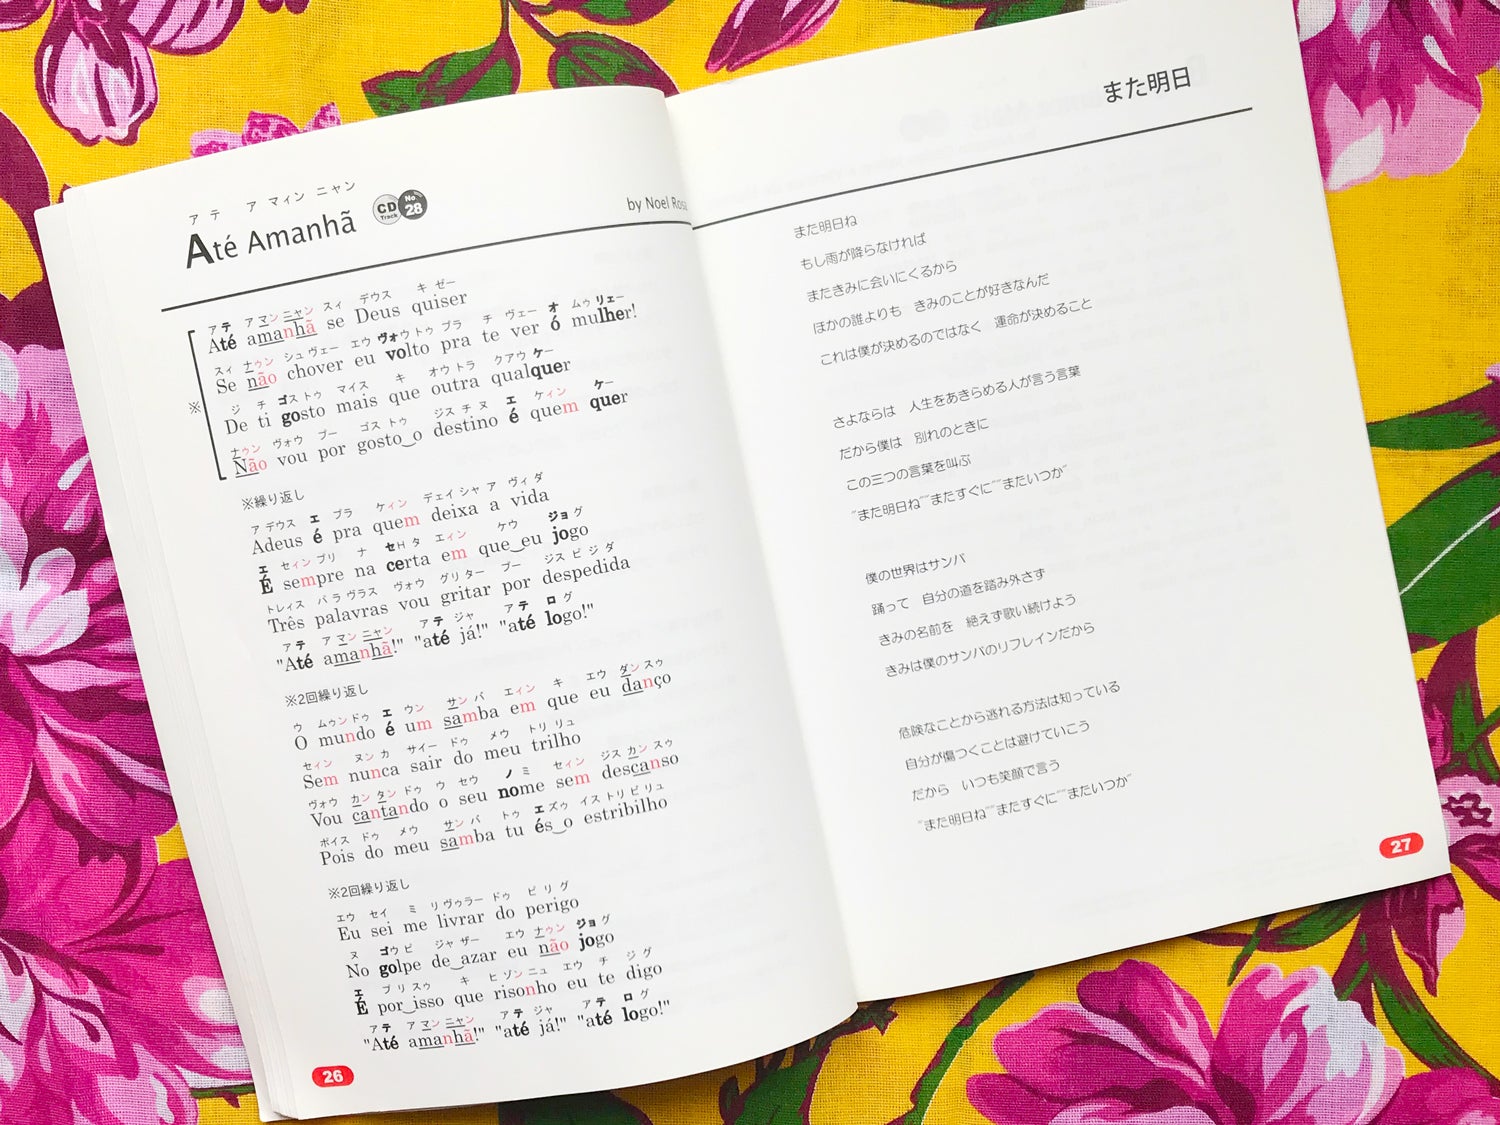 アテ ア マィン ニャン
Até Amanhã CD Track No. 28
by Noel Rosa
アテ ア マン ニャン スィ デウス キ ゼー
Até amanhã se Deus quiser
スィ ナゥン シュ ヴェー エウ ヴォウ トゥ プラ チ ヴェー オ ムゥ リェー
Se não chover eu volto pra te ver ó mulher!
ジ チ ゴス トゥ マイス キ オウ トラ クアウ ケー
De ti gosto mais que outra qualquer
※
ナゥン ヴォウ プー ゴス トゥ ジス チ ヌ エ ケィン ケー
Não vou por gosto‿o destino é quem quer
※繰り返し
ア デウス エ プラ ケィン デェイ シャ ア ヴィ ダ
Adeus é pra quem deixa a vida
エ セィン プリ ナ セH タ エィン ケウ ジョ グ
É sempre na certa em que‿eu jogo
トレィス パ ラ ヴラス ヴォウ グリ ター プー ジス ピ ジ ダ
Três palavras vou gritar por despedida
アテ ア マン ニャン アテ ジャ アテ ロ グ
"Até amanhã!" "até já!" "até logo!"
※2回繰り返し
ウ ムゥン ドゥ エ ウン サン バ エィン キ エウ ダン スゥ
O mundo é um samba em que eu danço
セィン ヌン カ サイー ドゥ メウ トリ リュ
Sem nunca sair do meu trilho
ヴォウ カン タン ドゥ ウ セウ ノ ミ セィン ジス カン スゥ
Vou cantando o seu nome sem descanso
ポイス ドゥ メウ サン バ トゥ エズゥ イス トリ ビ リュ
Pois do meu samba tu és‿o estribilho
※2回繰り返し
エウ セイ ミ リ ヴゥラー ドゥ ピ リ グ
Eu sei me livrar do perigo
ヌ ゴウ ピ ジャ ザー エウ ナゥン ジョ グ
No golpe de‿azar eu não jogo
エ プ リ スゥ キ ヒ ゾン ニュ エウ チ ジ グ
É por‿isso que risonho eu te digo
アテ ア マン ニャン アテ ジャ アテ ロ グ
"Até amanhã!" "até já!" "até logo!"
26
また明日
また明日ね
もし雨が降らなければ
またきみに会いにくるから
ほかの誰よりも きみのことが好きなんだ
これは僕が決めるのではなく 運命が決めること
さよならは 人生をあきらめる人が言う言葉
だから僕は 別れのときに
この三つの言葉を叫ぶ
"また明日ね""またすぐに""またいつか"
僕の世界はサンバ
踊って 自分の道を踏み外さず
きみの名前を 絶えず歌い続けよう
きみは僕のサンバのリフレインだから
危険なことから逃れる方法は知っている
自分が傷つくことは避けていこう
だから いつも笑顔で言う
"また明日ね""またすぐに""またいつか"
27